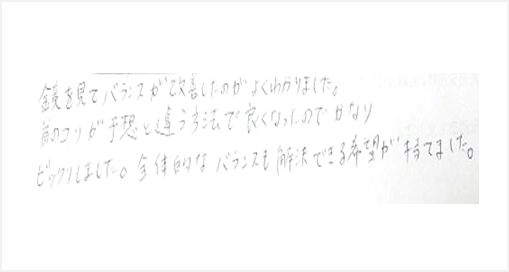 鏡を見てバランスが改善したのがよくわかりました。
首のコリが予想と違う方法で良くなったのでかなり
ビックリしました。全体的なバランスも解決できる希望が持てました。